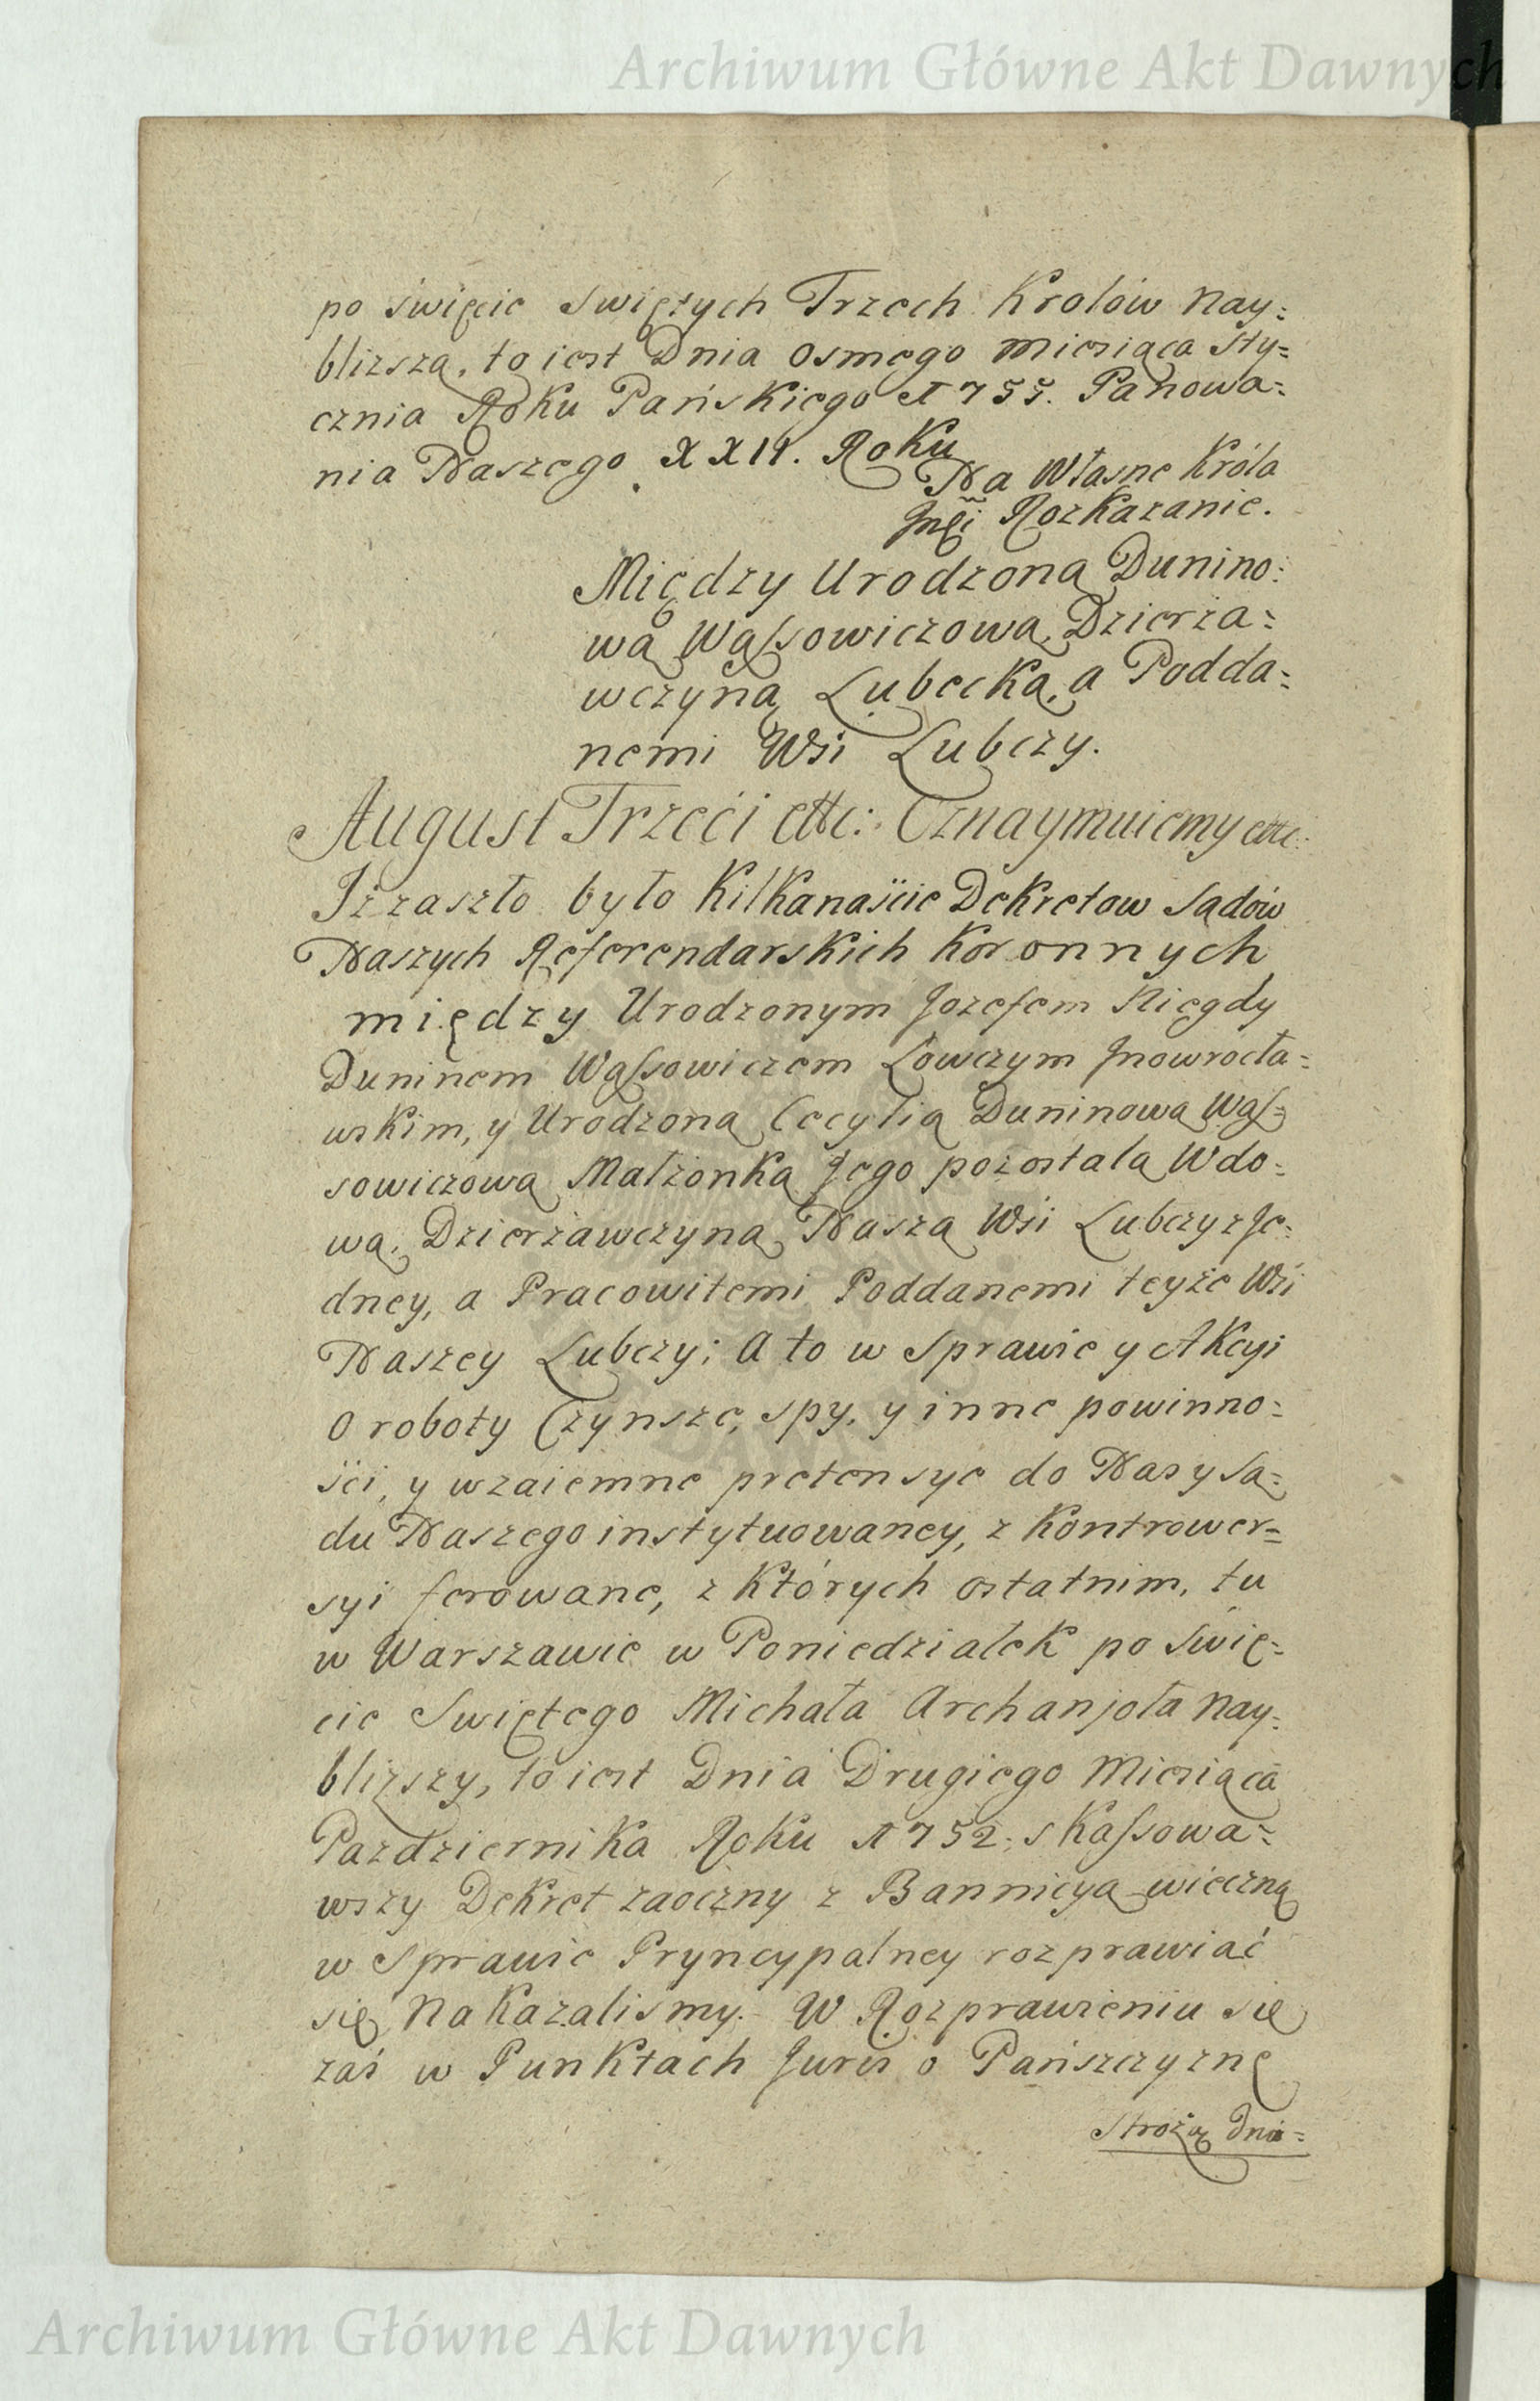 Archiwum Główne Akt Dawnych
po święcie Swiętych Trzech Krolów Nay:
blizszą, to iest Dnia Osmego Miesiąca Sty=
cznia Roku Pańskiego 1755. Panowa=
nia Naszego XXII. Roku
Na Własne Króla
Jmći Rozkazanie.
Między Urodzoną Dunino:
wą Wąssowiczową, Dzierża=
wczyną Lubecką, a Podda=
nemi Wsi Lubczy.
August Trzeći etc: Oznaymuiemy etc:
Iż zaszło było Kilkanaście Dekretow Sądów
Naszych Referendarskich Koronnych
między Urodzonym Jozefem Niegdy
Duninem Wąssowiczem Łowczym Jnowrocła=
wskim, y Urodzoną Cecylią Duninową Wąs=
sowiczową Małżonką Jego pozostałą Wdo=
wą, Dzierżawczyną Naszą Wsi Lubczy z Je=
dney, a Pracowitemi Poddanemi teyże Wsi
Naszey Lubczy; A to w Sprawie y Akcyi
O roboty Czynsze, spy, y inne powinno=
ści, y wzaiemne pretensye do Nas y Są=
du Naszego instytuowaney, z Kontrower=
syi ferowane, z Których ostatnim, tu
w Warszawie w Poniedziałek po Swię=
cie Swiętego Michała Archanjoła Nay=
bliższy, to iest Dnia Drugiego Miesiąca
Pazdziernika Roku 1752. skassowa=
wszy Dekret zaoczny z Bannicyą wieczną
w Sprawie Pryncypalney rozprawiać
się Nakazalismy. W Rozprawieniu się
zaś w Punktach Juris o Pańszczyznę
Strożą dni=
Archiwum Główne Akt Dawnych